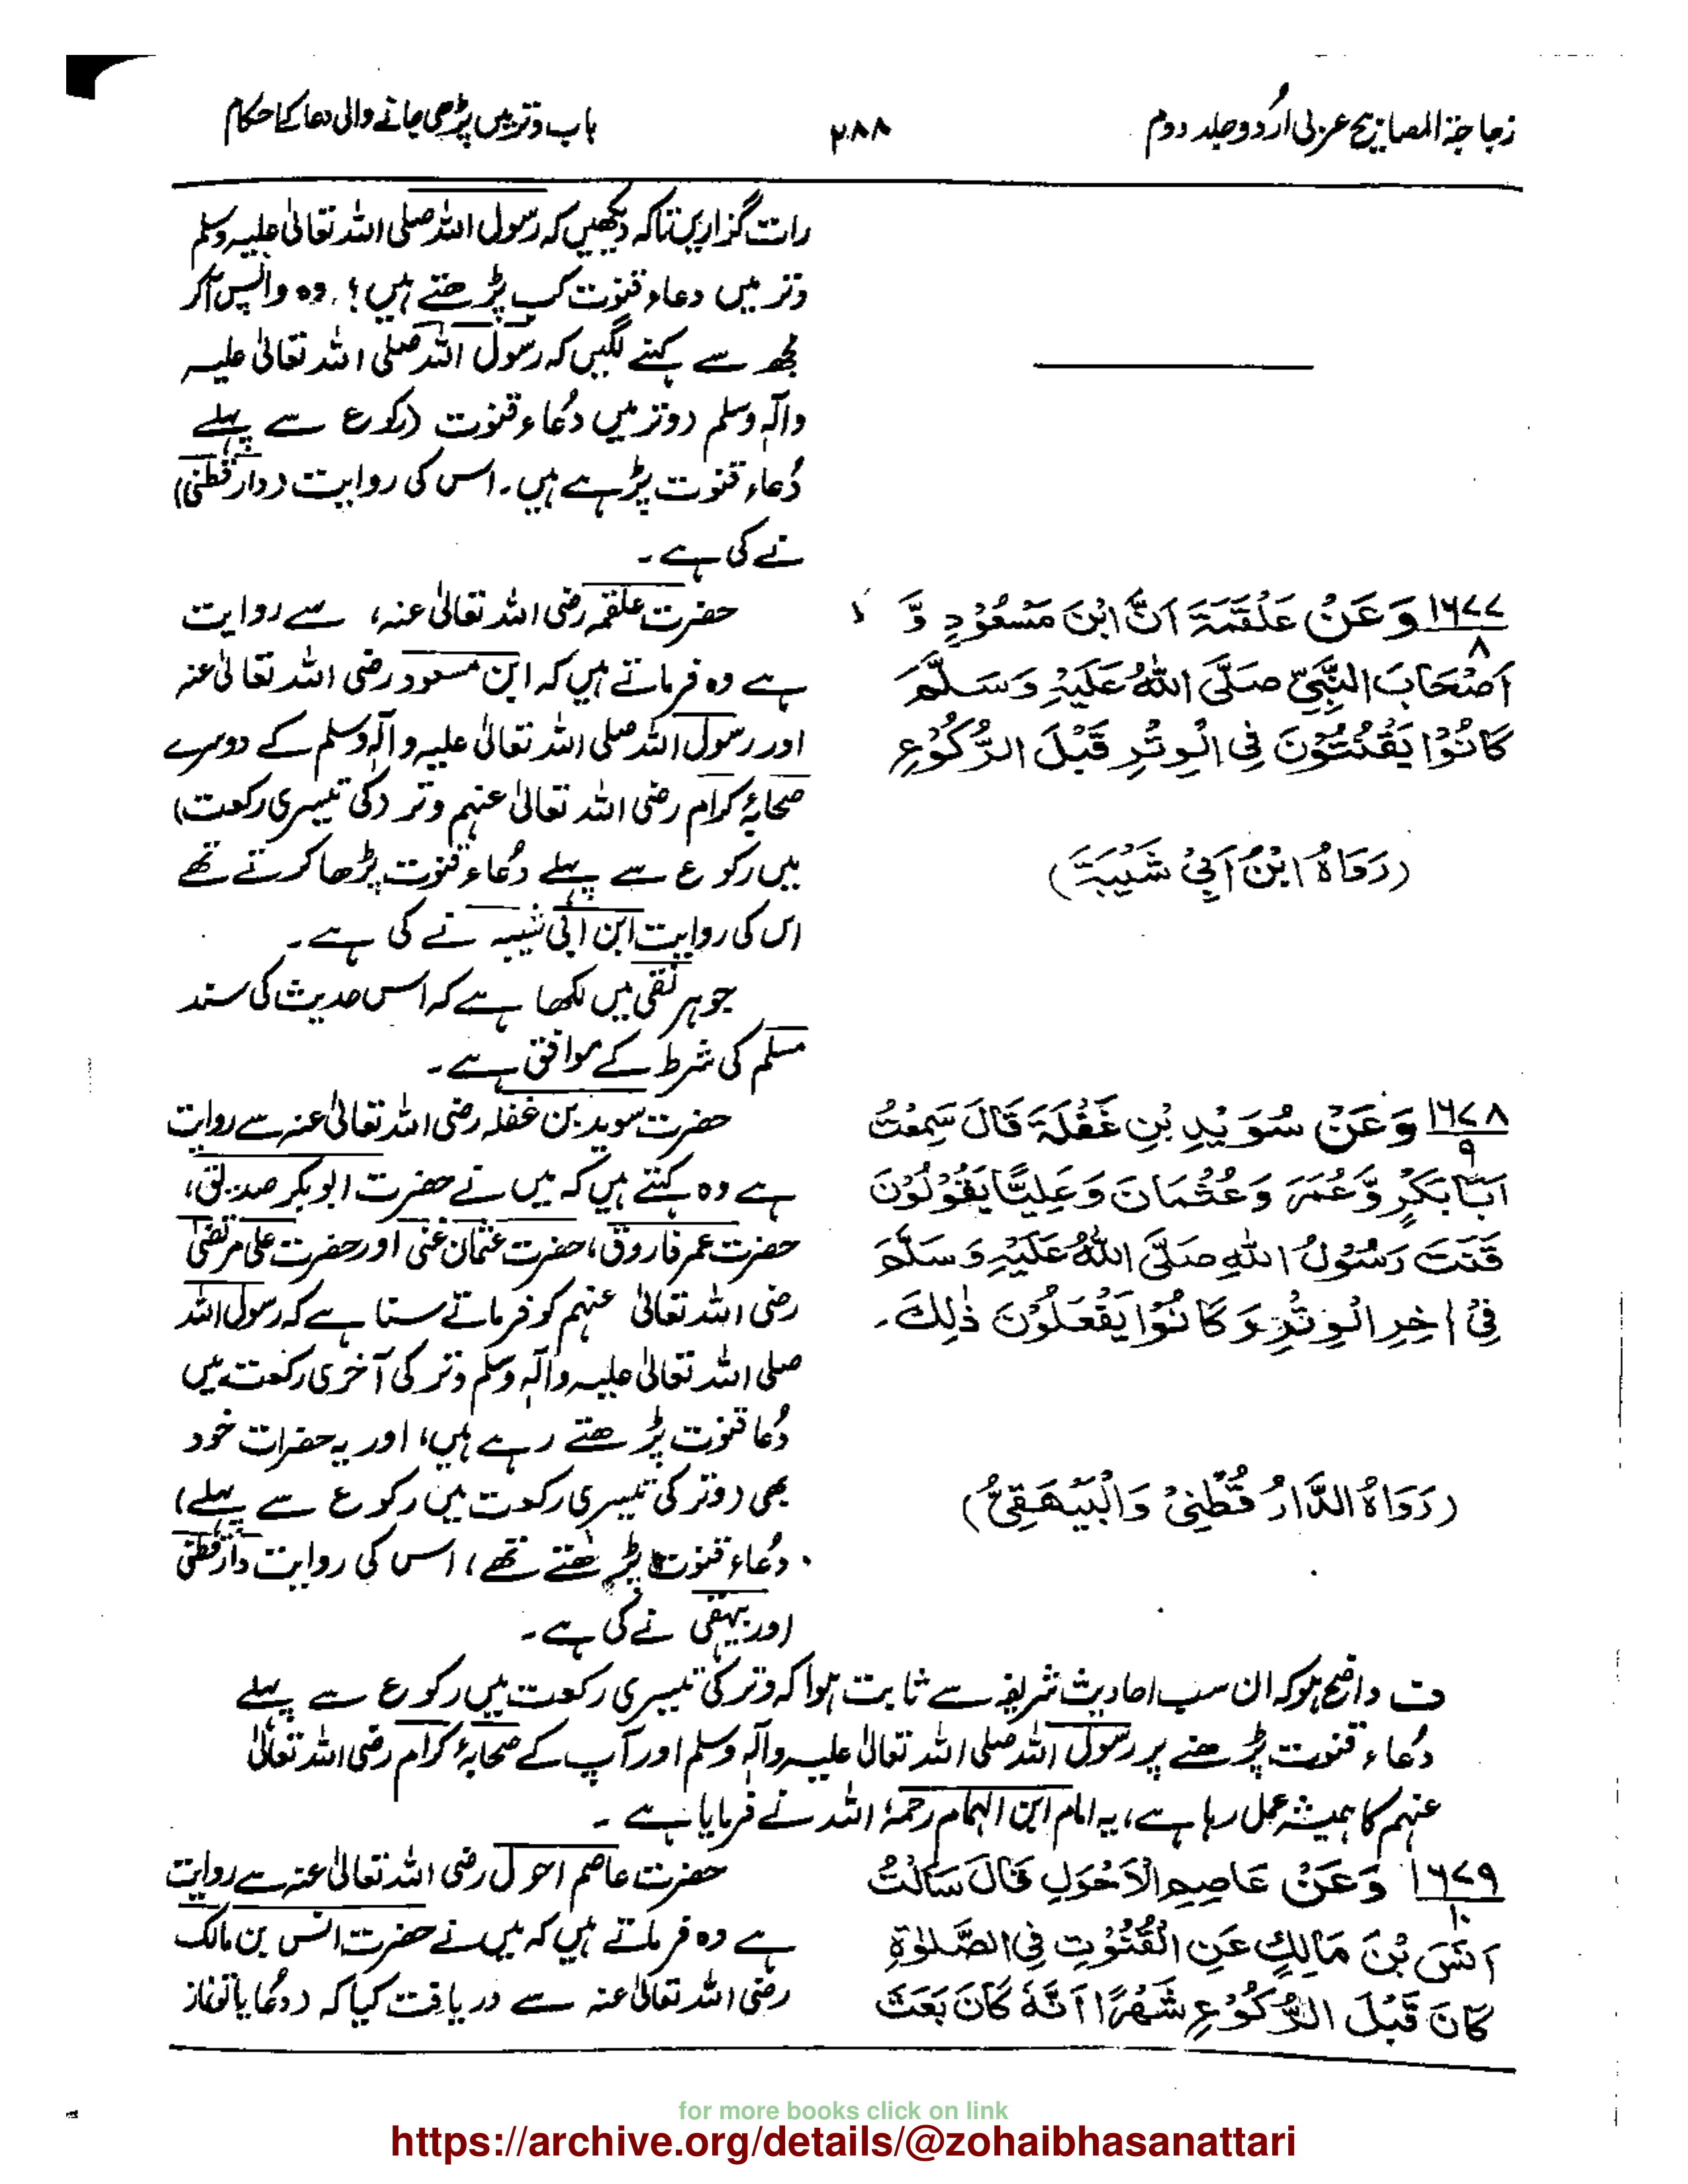 زجاجۃ المصابیح عربی اُردو جلد دوم
۲۸۸
باب وتر میں پڑھی جانے والی دعا کا حکام
رات گزاریں تاکہ دیکھیں کہ رسول اللہ صلی اللہ تعالیٰ علیہ وسلم
وتر میں دعاء قنوت کب پڑھتے ہیں؟ وہ واپس آکر
مجھ سے کہنے لگیں کہ رسول اللہ صلی اللہ تعالیٰ علیہ
وآلہٖ وسلم (وتر میں دُعاء قنوت (رکوع سے پہلے
دُعاء قنوت پڑھے ہیں۔ اس کی روایت (دارقطنی)
نے کی ہے۔
۱۶۷۷/۸ وَعَنْ عَلْقَمَۃَ اَنَّ ابْنَ مَسْعُوْدٍ وَّ
اَصْحَابَ النَّبِیِّ صَلَّی اللّٰہُ عَلَیْہِ وَسَلَّمَ
کَانُوْا یَقْنُتُوْنَ فِی الْوِتْرِ قَبْلَ الرُّکُوْعِ
(رَوَاہُ ابْنُ اَبِیْ شَیْبَۃَ)
حضرت علقمہ رضی اللہ تعالیٰ عنہ، سے روایت
ہے وہ فرماتے ہیں کہ ابن مسعود رضی اللہ تعالیٰ عنہ
اور رسول اللہ صلی اللہ تعالیٰ علیہ وآلہٖ وسلم کے دوسرے
صحابۂ کرام رضی اللہ تعالیٰ عنہم وتر (کی تیسری رکعت)
میں رکوع سے پہلے دُعاء قنوت پڑھا کرتے تھے
اس کی روایت ابن ابی شیبہ نے کی ہے۔
جوہر نقی میں لکھا ہے کہ اس حدیث کی سند
مسلم کی شرط کے موافق ہے۔
۱۶۷۸/۹ وَعَنْ سُوَیْدِ بْنِ غَفْلَۃَ قَالَ سَمِعْتُ
اَبَا بَکْرٍ وَّعُمَرَ وَعُثْمَانَ وَعَلِیًّا یَقُوْلُوْنَ
قَنَتَ رَسُوْلُ اللّٰہِ صَلَّی اللّٰہُ عَلَیْہِ وَسَلَّمَ
فِیْ اٰخِرِ الْوِتْرِ وَکَانُوْا یَفْعَلُوْنَ ذٰلِکَ۔
(رَوَاہُ الدَّارُ قُطْنِیْ وَالْبَیْھَقِیُّ)
حضرت سوید بن غفلہ رضی اللہ تعالیٰ عنہ سے روایت
ہے وہ کہتے ہیں کہ میں نے حضرت ابوبکر صدیق،
حضرت عمر فاروق، حضرت عثمان غنی اور حضرت علی مرتضیٰ
رضی اللہ تعالیٰ عنہم کو فرماتے سنا ہے کہ رسول اللہ
صلی اللہ تعالیٰ علیہ وآلہٖ وسلم وتر کی آخری رکعت میں
دُعا قنوت پڑھتے رہے ہیں، اور یہ حضرات خود
بھی (وتر کی تیسری رکعت میں رکوع سے پہلے)
دُعاء قنوت پڑھتے تھے، اس کی روایت دارقطنی
اور بیہقی نے کی ہے۔
ف واضح ہو کہ ان سب احادیث شریفہ سے ثابت ہوا کہ وتر کی تیسری رکعت میں رکوع سے پہلے
دُعاء قنوت پڑھنے پر رسول اللہ صلی اللہ تعالیٰ علیہ وآلہٖ وسلم اور آپ کے صحابۂ کرام رضی اللہ تعالیٰ
عنہم کا ہمیشہ عمل رہا ہے، یہ امام ابن الہمام رحمۃ اللہ نے فرمایا ہے۔
۱۶۷۹/۱۰ وَعَنْ عَاصِمِ الْاَحْوَلِ قَالَ سَاَلْتُ
اَنَسَ بْنَ مَالِکٍ عَنِ الْقُنُوْتِ فِی الصَّلٰوۃِ
کَانَ قَبْلَ الرُّکُوْعِ شَھْرًا اَنَّہٗ کَانَ بَعَثَ
حضرت عاصم احول رضی اللہ تعالیٰ عنہ سے روایت
ہے وہ فرماتے ہیں کہ میں نے حضرت انس بن مالک
رضی اللہ تعالیٰ عنہ سے دریافت کیا کہ (دُعا یا
for more books click on link
https://archive.org/details/@zohaibhasanattari